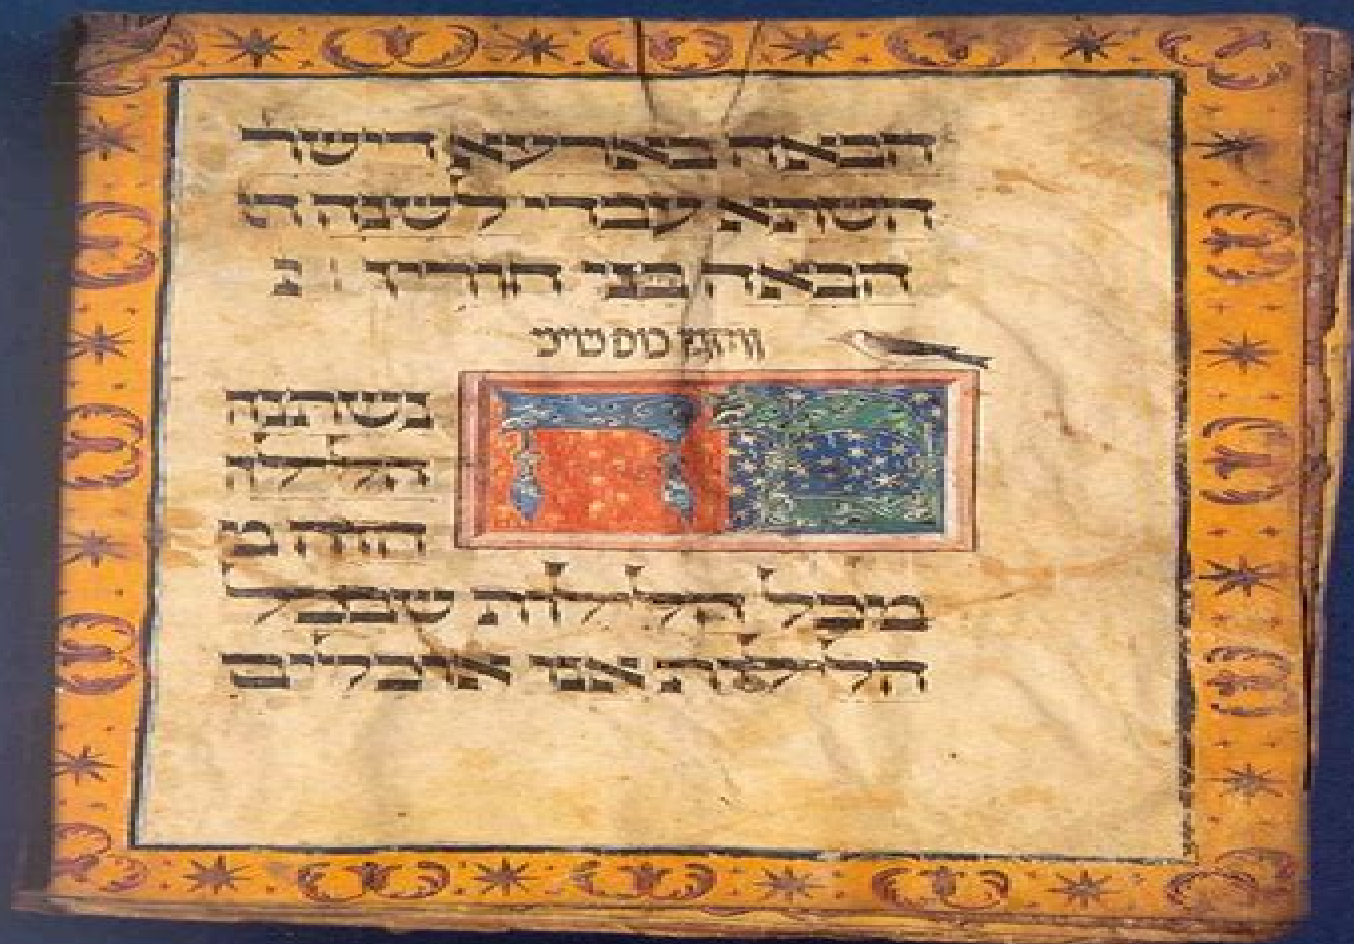 הבאה בארעא דישר
השתא עבדי לשנה ה
הבאה בני חורין
כוס
מה נשתנה
הלילה
הזה מ
מכל הלילות שבכל
הלילות אנו אוכלים